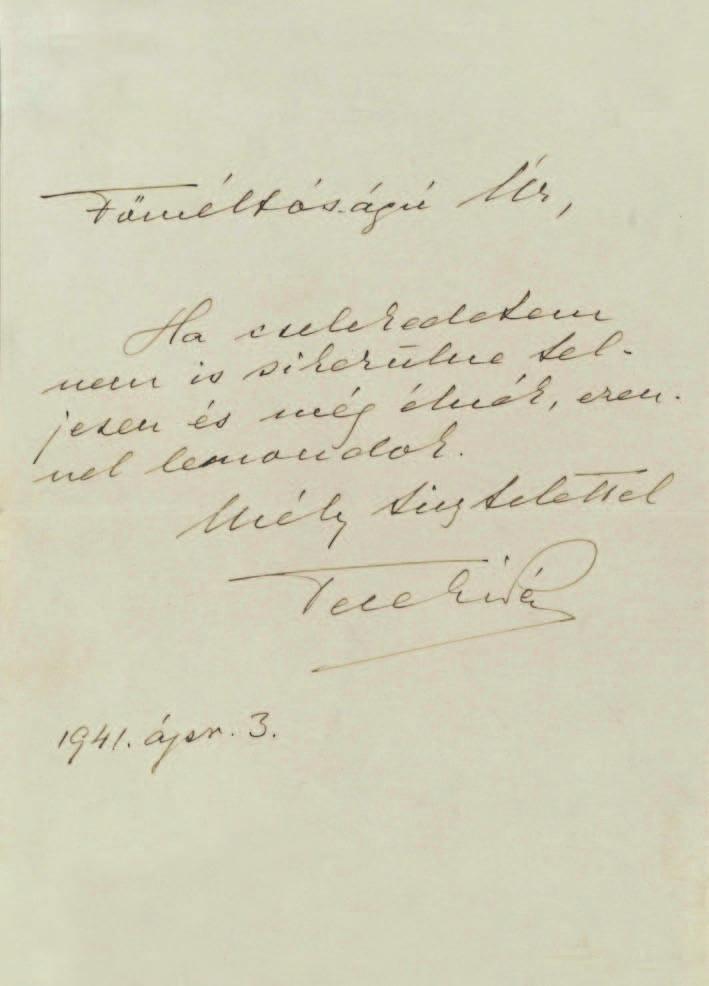 Főméltóságú Úr,
Ha cselekedetem
nem is sikerülne tel-
jesen és még élnék, ezen-
nel lemondok.
Mély tisztelettel
Teleki Pál
1941. ápr. 3.